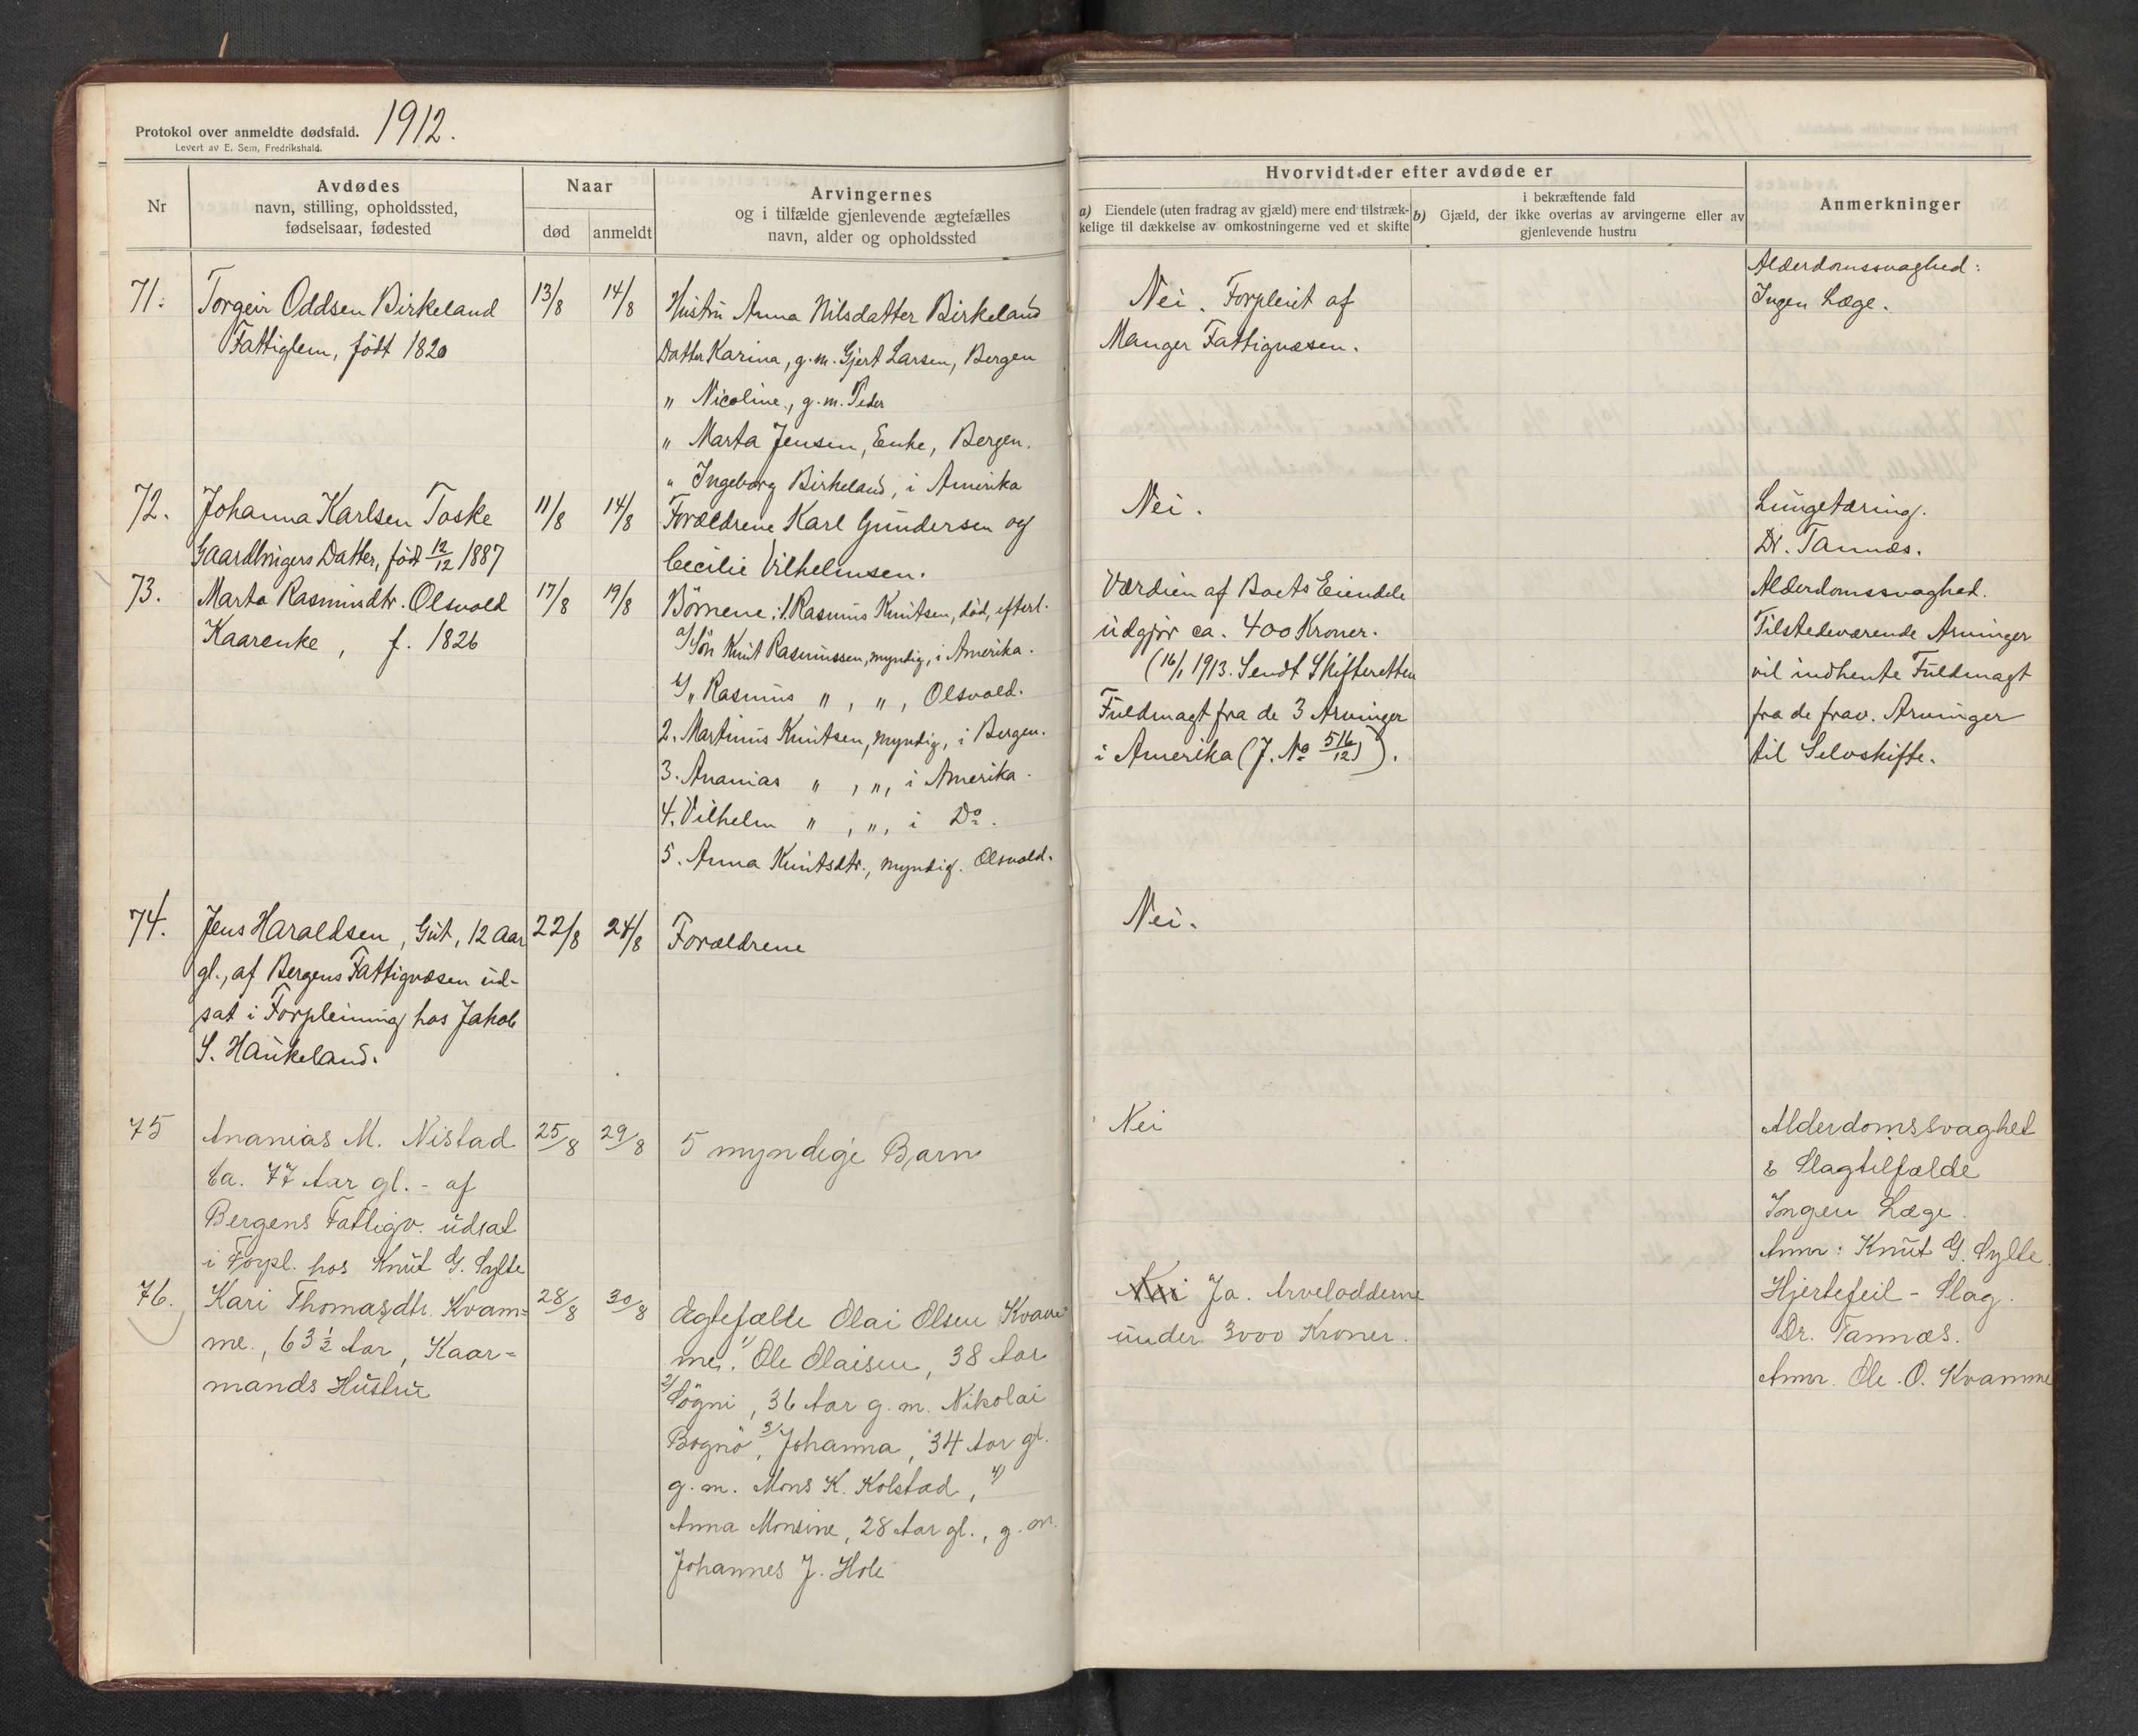 Protokol over anmeldte dødsfald. 1912.
Levert av E. Sem, Fredrikshald.
Nr
Avdødes
navn, stilling, opholdssted,
fødselsaar, fødested
Naar
død
anmeldt
Arvingernes
og i tilfælde gjenlevende ægtefælles
navn, alder og opholdssted
Hvorvidt der efter avdøde er
a) Eiendele (uten fradrag av gjæld) mere end tilstræk-
kelige til dækkelse av omkostningerne ved et skifte
i bekræftende fald
b) Gjæld, der ikke overtas av arvingerne eller av
gjenlevende hustru
Anmerkninger
71.
Torgeir Oddsen Birkeland
Fattiglem, født 1820
13/8
14/8
Hustru Anna Nilsdatter Birkeland
Datter Karina, g.m. Gjert Larsen, Bergen
" Nicoline, g.m. Peder
" Marta Jensen, Enke, Bergen.
" Ingeborg Birkeland, i Amerika
Nei. Forpleiet af
Manger Fattigvæsen.
Alderdomssvaghed:
Ingen Læge.
72.
Johanna Karlsen Toske
Gaardbrugers Datter, født 12/12 1887
11/8
14/8
Forældrene Karl Gundersen og
Cecilie Vilhelmsen.
Nei.
Lungetæring.
Dr. Tannæs.
73.
Marta Rasmusdtr. Olsvold
Kaarenke, f. 1826
17/8
19/8
Børnene: 1. Rasmus Knutsen, død, efterl.
a/ Søn Knut Rasmussen, myndig, i Amerika.
b/ " Rasmus " , " , Olsvold.
2. Martinus Knutsen, myndig, i Bergen.
3. Ananias " , " , i Amerika.
4. Vilhelm " , " , i Do.
5. Anna Knutsdtr., myndig. Olsvold.
Værdien af Boets Eiendele
udgjør ca. 400 Kroner.
(16/1 1913. Sendt Skifteretten
Fuldmagt fra de 3 Arvinger
i Amerika (J. No 516/12)).
Alderdomssvaghed.
Tilstedeværende Arvinger
vil indhente Fuldmagt
fra de frav. Arvinger
til Selvskifte.
74.
Jens Haraldsen, Gut, 12 Aar
gl., af Bergens Fattigvæsen ud-
sat i Forpleining hos Jakob
S. Haukeland.
22/8
24/8
Forældrene
Nei.
75
Ananias M. Nistad
Ca. 77 Aar gl. - af
Bergens Fattigv. udsat
i Forpl. hos Knut G. Sylte
25/8
29/8
5 myndige Barn
Nei
Alderdomssvaghet
& Slagtilfælde
Ingen Læge.
Anm: Knut G. Sylte.
76.
Kari Thomasdtr. Kvam=
me., 63½ Aar, Kaar=
mands Hustru
28/8
30/8
Ægtefælde Olai Olsen Kvam
me. 1) Ole Olaisen, 38 Aar
2/ Søgni, 36 Aar g.m. Nikolai
Bognø, 3/ Johanna, 34 Aar gl.
g.m. Mons K. Kolstad, 4)
Anna Monsine, 28 Aar gl., g.m.
Johannes J. Hole
Nei Ja. Arvelodderne
under 3000 Kroner.
Hjertefeil - Slag.
Dr. Tannæs.
Anm. Ole O. Kvamme